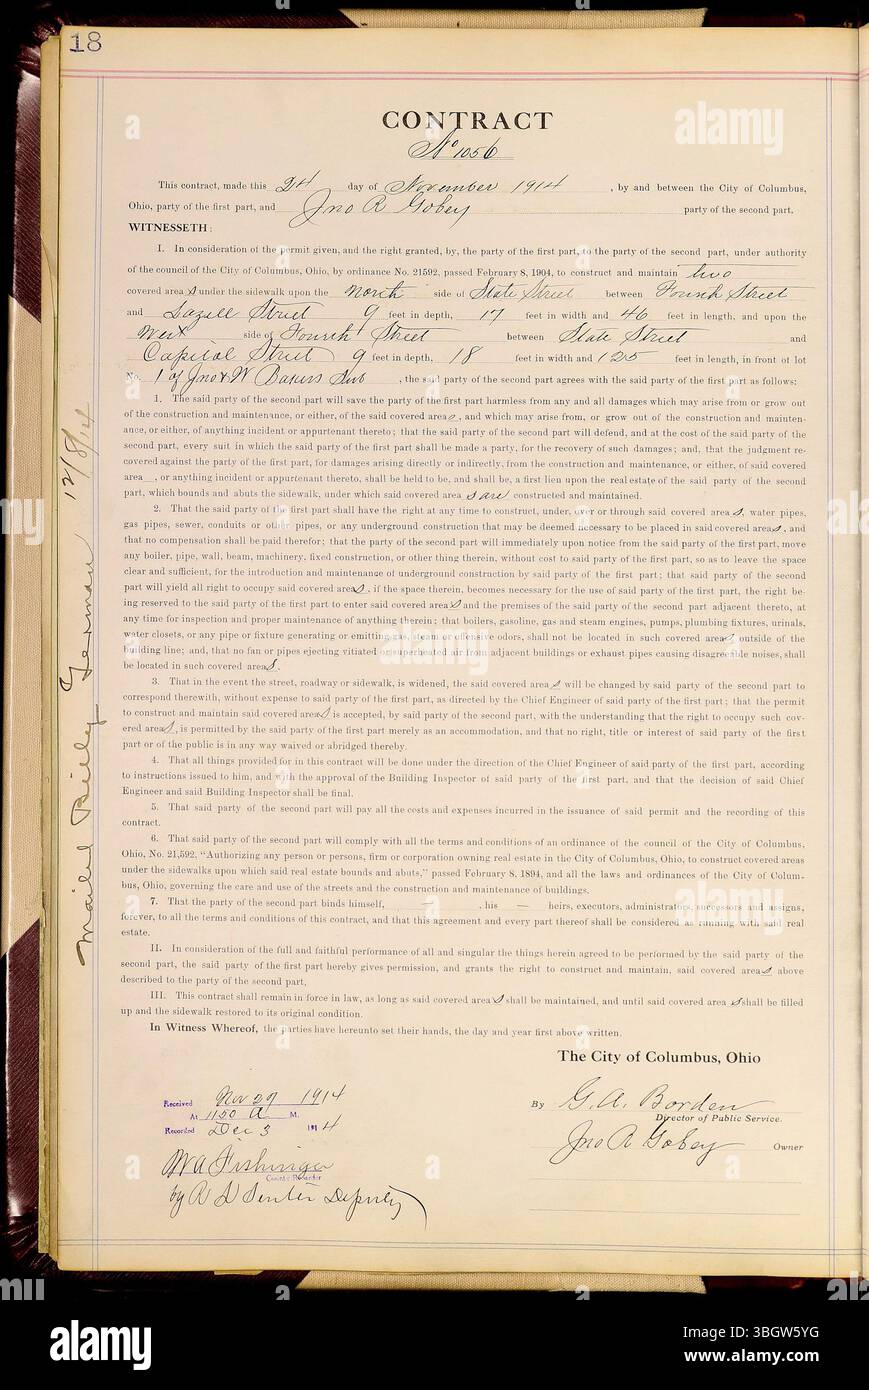 18
CONTRACT
No 1056
This contract, made this 24 day of November 1914, by and between the City of Columbus,
Ohio, party of the first part, and Jno R Gobey party of the second part,
WITNESSETH:
I. In consideration of the permit given, and the right granted, by, the party of the first part, to the party of the second part, under authority
of the council of the City of Columbus, Ohio, by ordinance No. 21592, passed February 8, 1904, to construct and maintain two
covered area s under the sidewalk upon the North side of State Street between Fourth Street
and Lazell Street 9 feet in depth, 17 feet in width and 46 feet in length, and upon the
West side of Fourth Street between State Street and
Capitol Street 9 feet in depth, 18 feet in width and 125 feet in length, in front of lot
No. 1 of Jno & W Bakers Sub, the said party of the second part agrees with the said party of the first part as follows:
1. The said party of the second part will save the party of the first part harmless from any and all damages which may arise from or grow out
of the construction and maintenance, or either, of the said covered areas, and which may arise from, or grow out of the construction and mainten-
ance, or either, of anything incident or appurtenant thereto; that the said party of the second part will defend, and at the cost of the said party of the
second part, every suit in which the said party of the first part shall be made a party, for the recovery of such damages; and, that the judgment re-
covered against the party of the first part, for damages arising directly or indirectly, from the construction and maintenance, or either, of said covered
area , or anything incident or appurtenant thereto, shall be held to be, and shall be, a first lien upon the real estate of the said party of the second
part, which bounds and abuts the sidewalk, under which said covered area s are constructed and maintained.
2. That the said party of the first part shall have the right at any time to construct, under, over or through said covered areas, water pipes,
gas pipes, sewer, conduits or other pipes, or any underground construction that may be deemed necessary to be placed in said covered areas, and
that no compensation shall be paid therefor; that the party of the second part will immediately upon notice from the said party of the first part, move
any boiler, pipe, wall, beam, machinery, fixed construction, or other thing therein, without cost to said party of the first part, so as to leave the space
clear and sufficient, for the introduction and maintenance of underground construction by said party of the first part; that said party of the second
part will yield all right to occupy said covered areas, if the space therein, becomes necessary for the use of said party of the first part, the right be-
ing reserved to the said party of the first part to enter said covered areas and the premises of the said party of the second part adjacent thereto, at
any time for inspection and proper maintenance of anything therein; that boilers, gasoline, gas and steam engines, pumps, plumbing fixtures, urinals,
water closets, or any pipe or fixture generating or emitting gas, steam or offensive odors, shall not be located in such covered areas, outside of the
building line; and, that no fan or pipes ejecting vitiated or superheated air from adjacent buildings or exhaust pipes causing disagreeable noises, shall
be located in such covered areas.
3. That in the event the street, roadway or sidewalk, is widened, the said covered areas will be changed by said party of the second part to
correspond therewith, without expense to said party of the first part, as directed by the Chief Engineer of said party of the first part; that the permit
to construct and maintain said covered areas is accepted, by said party of the second part, with the understanding that the right to occupy such cov-
ered areas, is permitted by the said party of the first part merely as an accommodation, and that no right, title or interest of said party of the first
part or of the public is in any way waived or abridged thereby.
4. That all things provided for in this contract will be done under the direction of the Chief Engineer of said party of the first part, according
to instructions issued to him, and with the approval of the Building Inspector of said party of the first part, and that the decision of said Chief
Engineer and said Building Inspector shall be final.
5. That said party of the second part will pay all the costs and expenses incurred in the issuance of said permit and the recording of this
contract.
6. That said party of the second part will comply with all the terms and conditions of an ordinance of the council of the City of Columbus,
Ohio, No. 21,592, "Authorizing any person or persons, firm or corporation owning real estate in the City of Columbus, Ohio, to construct covered areas
under the sidewalks upon which said real estate bounds and abuts," passed February 8, 1894, and all the laws and ordinances of the City of Colum-
bus, Ohio, governing the care and use of the streets and the construction and maintenance of buildings.
7. That the party of the second part binds himself, — , his — heirs, executors, administrators, successors and assigns,
forever, to all the terms and conditions of this contract, and that this agreement and every part thereof shall be considered as running with said real
estate.
II. In consideration of the full and faithful performance of all and singular the things herein agreed to be performed by the said party of the
second part, the said party of the first part hereby gives permission, and grants the right to construct and maintain, said covered areas above
described to the party of the second part.
III. This contract shall remain in force in law, as long as said covered areas shall be maintained, and until said covered area s shall be filled
up and the sidewalk restored to its original condition.
In Witness Whereof, the parties have hereunto set their hands, the day and year first above written.
The City of Columbus, Ohio
By G. A. Borden
Director of Public Service.
Jno R Gobey Owner
Received Nov 27 1914
At 1150 A M.
Recorded Dec 3 1914
County Recorder
by R Deputy
Mailed Billy German 12/8/14
alamy
Image ID: 3BGW5YG
www.alamy.com